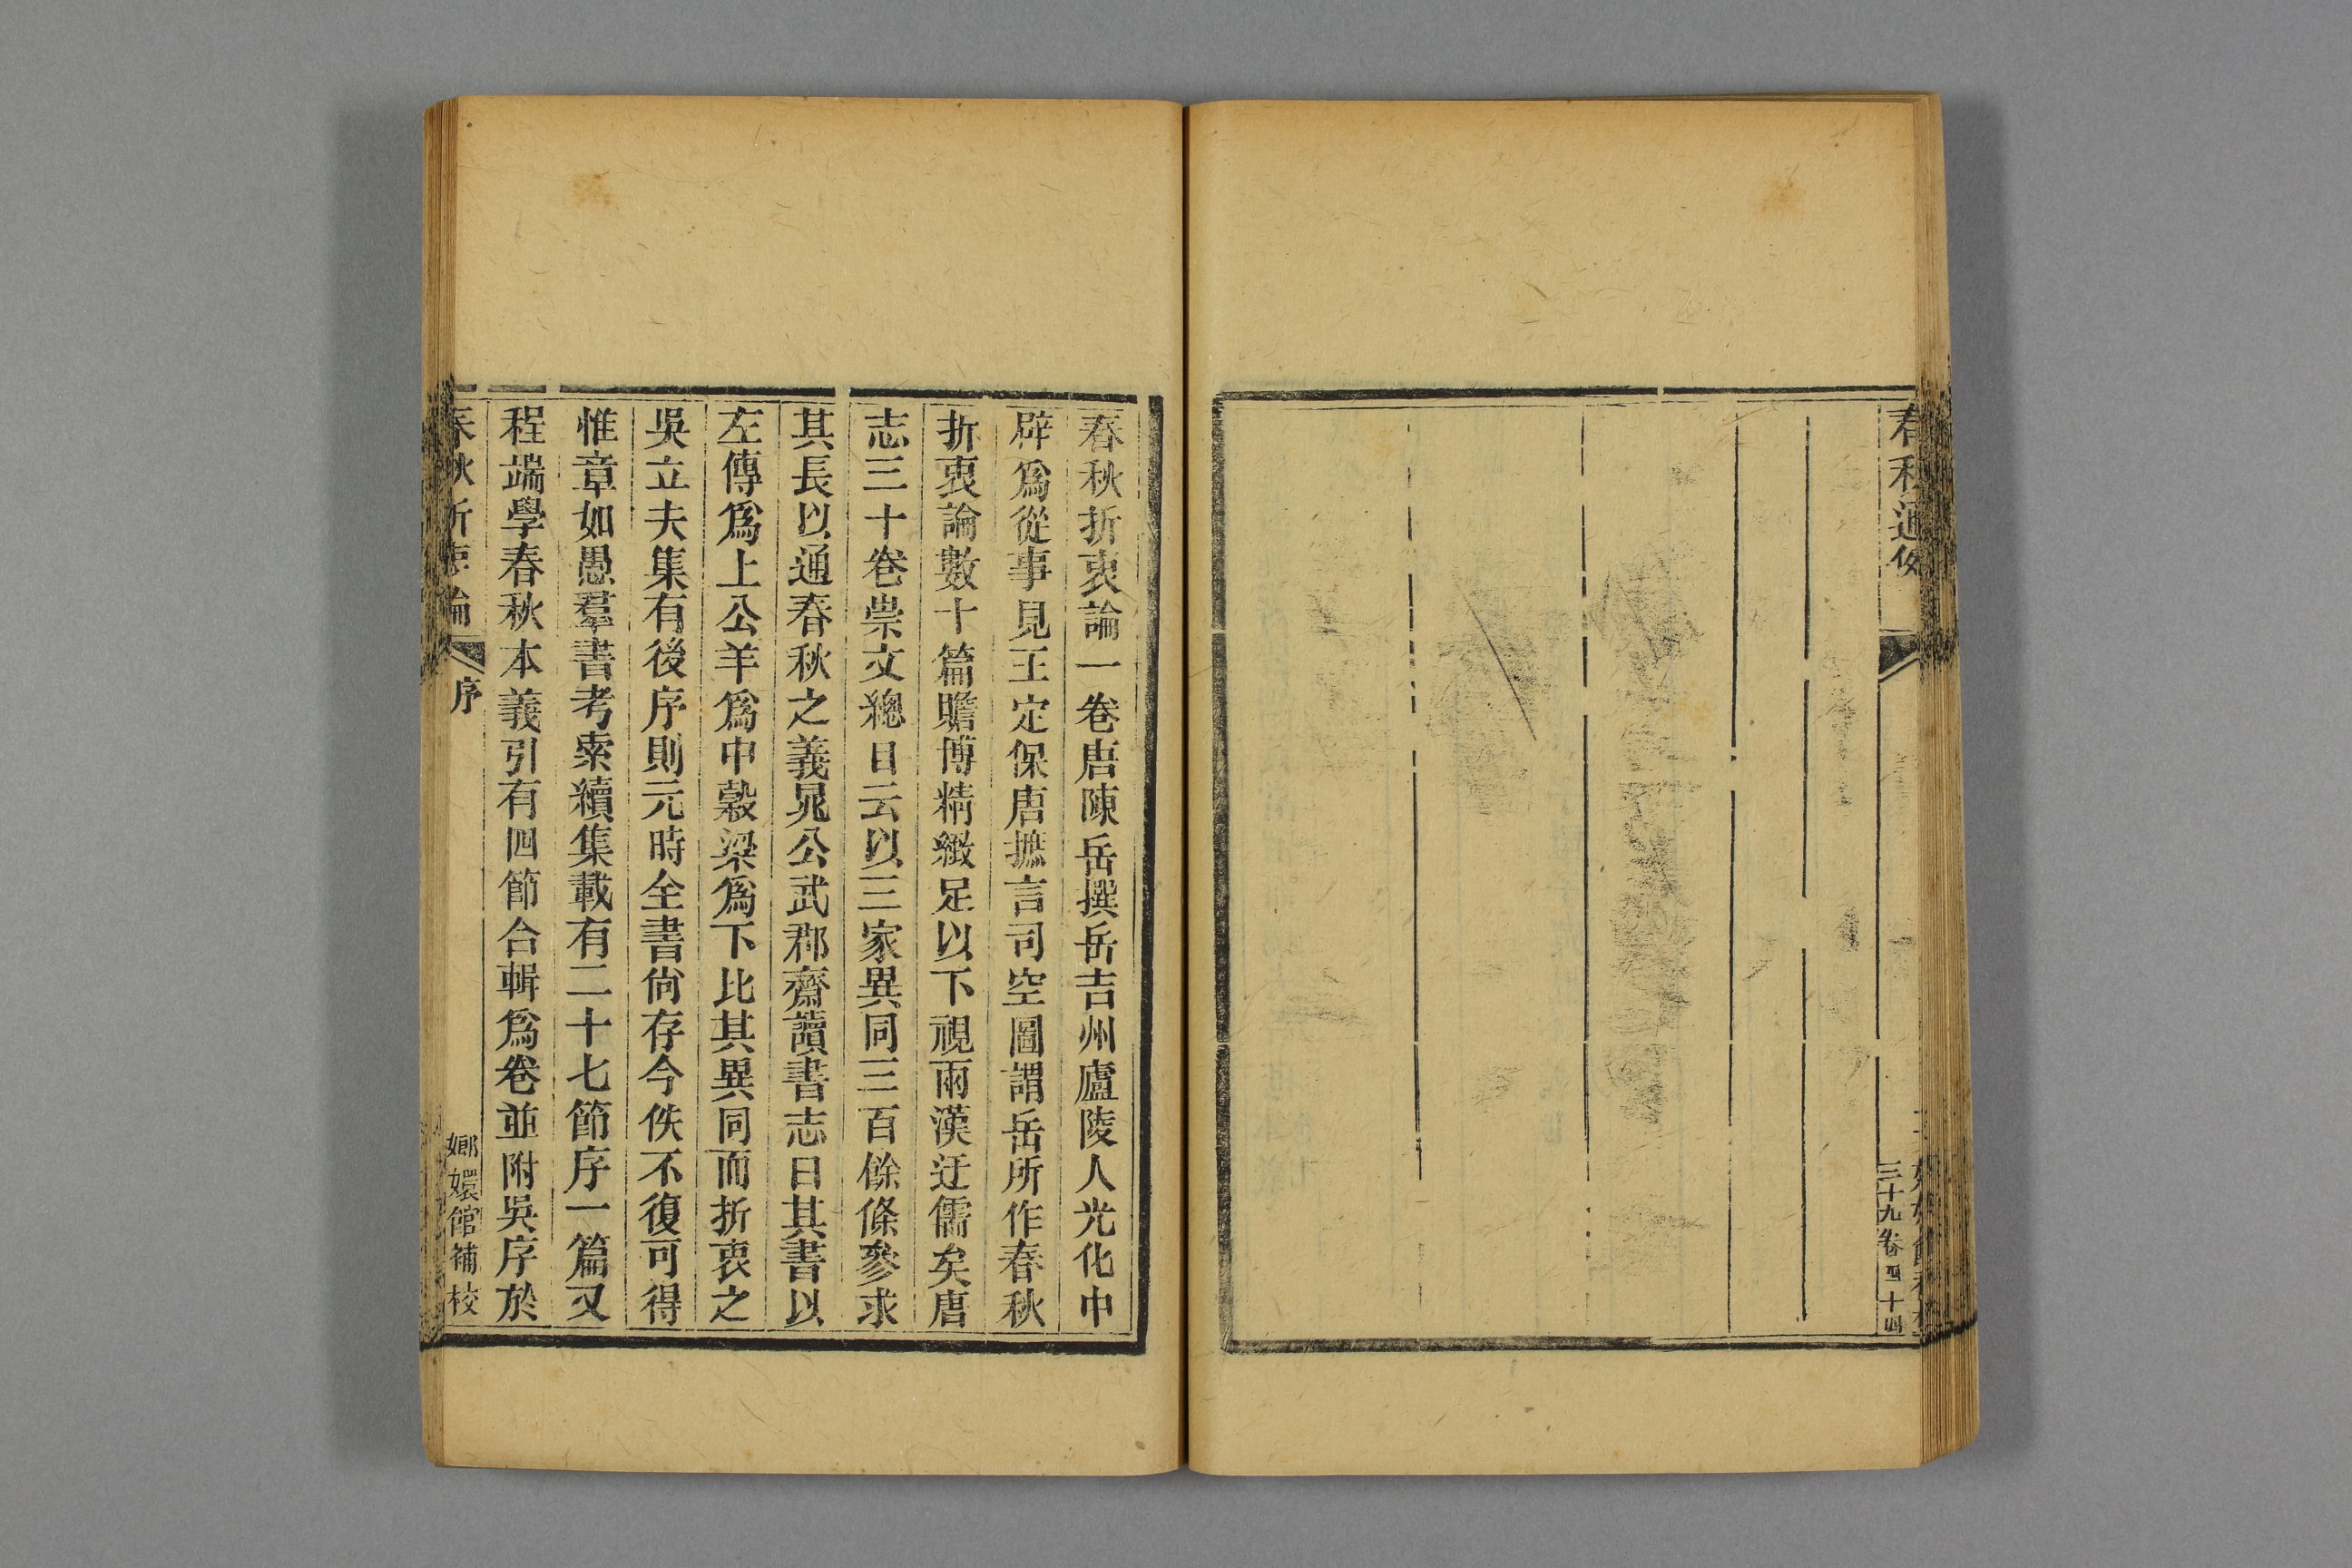 春秋通
三十九卷四十四
春秋折衷論一卷唐陳岳撰岳吉州廬陵人光化中
辟爲從事見王定保唐摭言司空圖謂岳所作春秋
折衷論數十篇贍博精緻足以下視兩漢迂儒矣唐
志三十卷崇文總目云以三家異同三百餘條參求
其長以通春秋之義晁公武郡齋讀書志曰其書以
左傳爲上公羊爲中榖梁爲下比其異同而折衷之
吳立夫集有後序則元時全書尙存今佚不復可得
惟章如愚羣書考索續集載有二十七節序一篇又
程端學春秋本義引有四節合輯爲卷並附吳序於
春秋折衷論 序 嫏嬛館補校